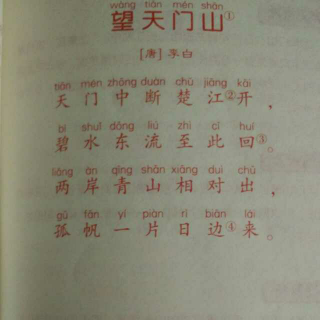 wàng tiān mén shān
望天门山①
[唐] 李白
tiān mén zhōng duàn chǔ jiāng kāi
天门中断楚江②开，
bì shuǐ dōng liú zhì cǐ huí
碧水东流至此回③。
liǎng àn qīng shān xiāng duì chū
两岸青山相对出，
gū fān yí piàn rì biān lái
孤帆一片日边④来。